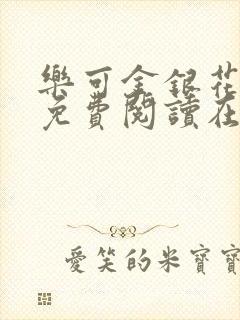 樂可金銀花
免費閱讀在
愛笑的米寶寶